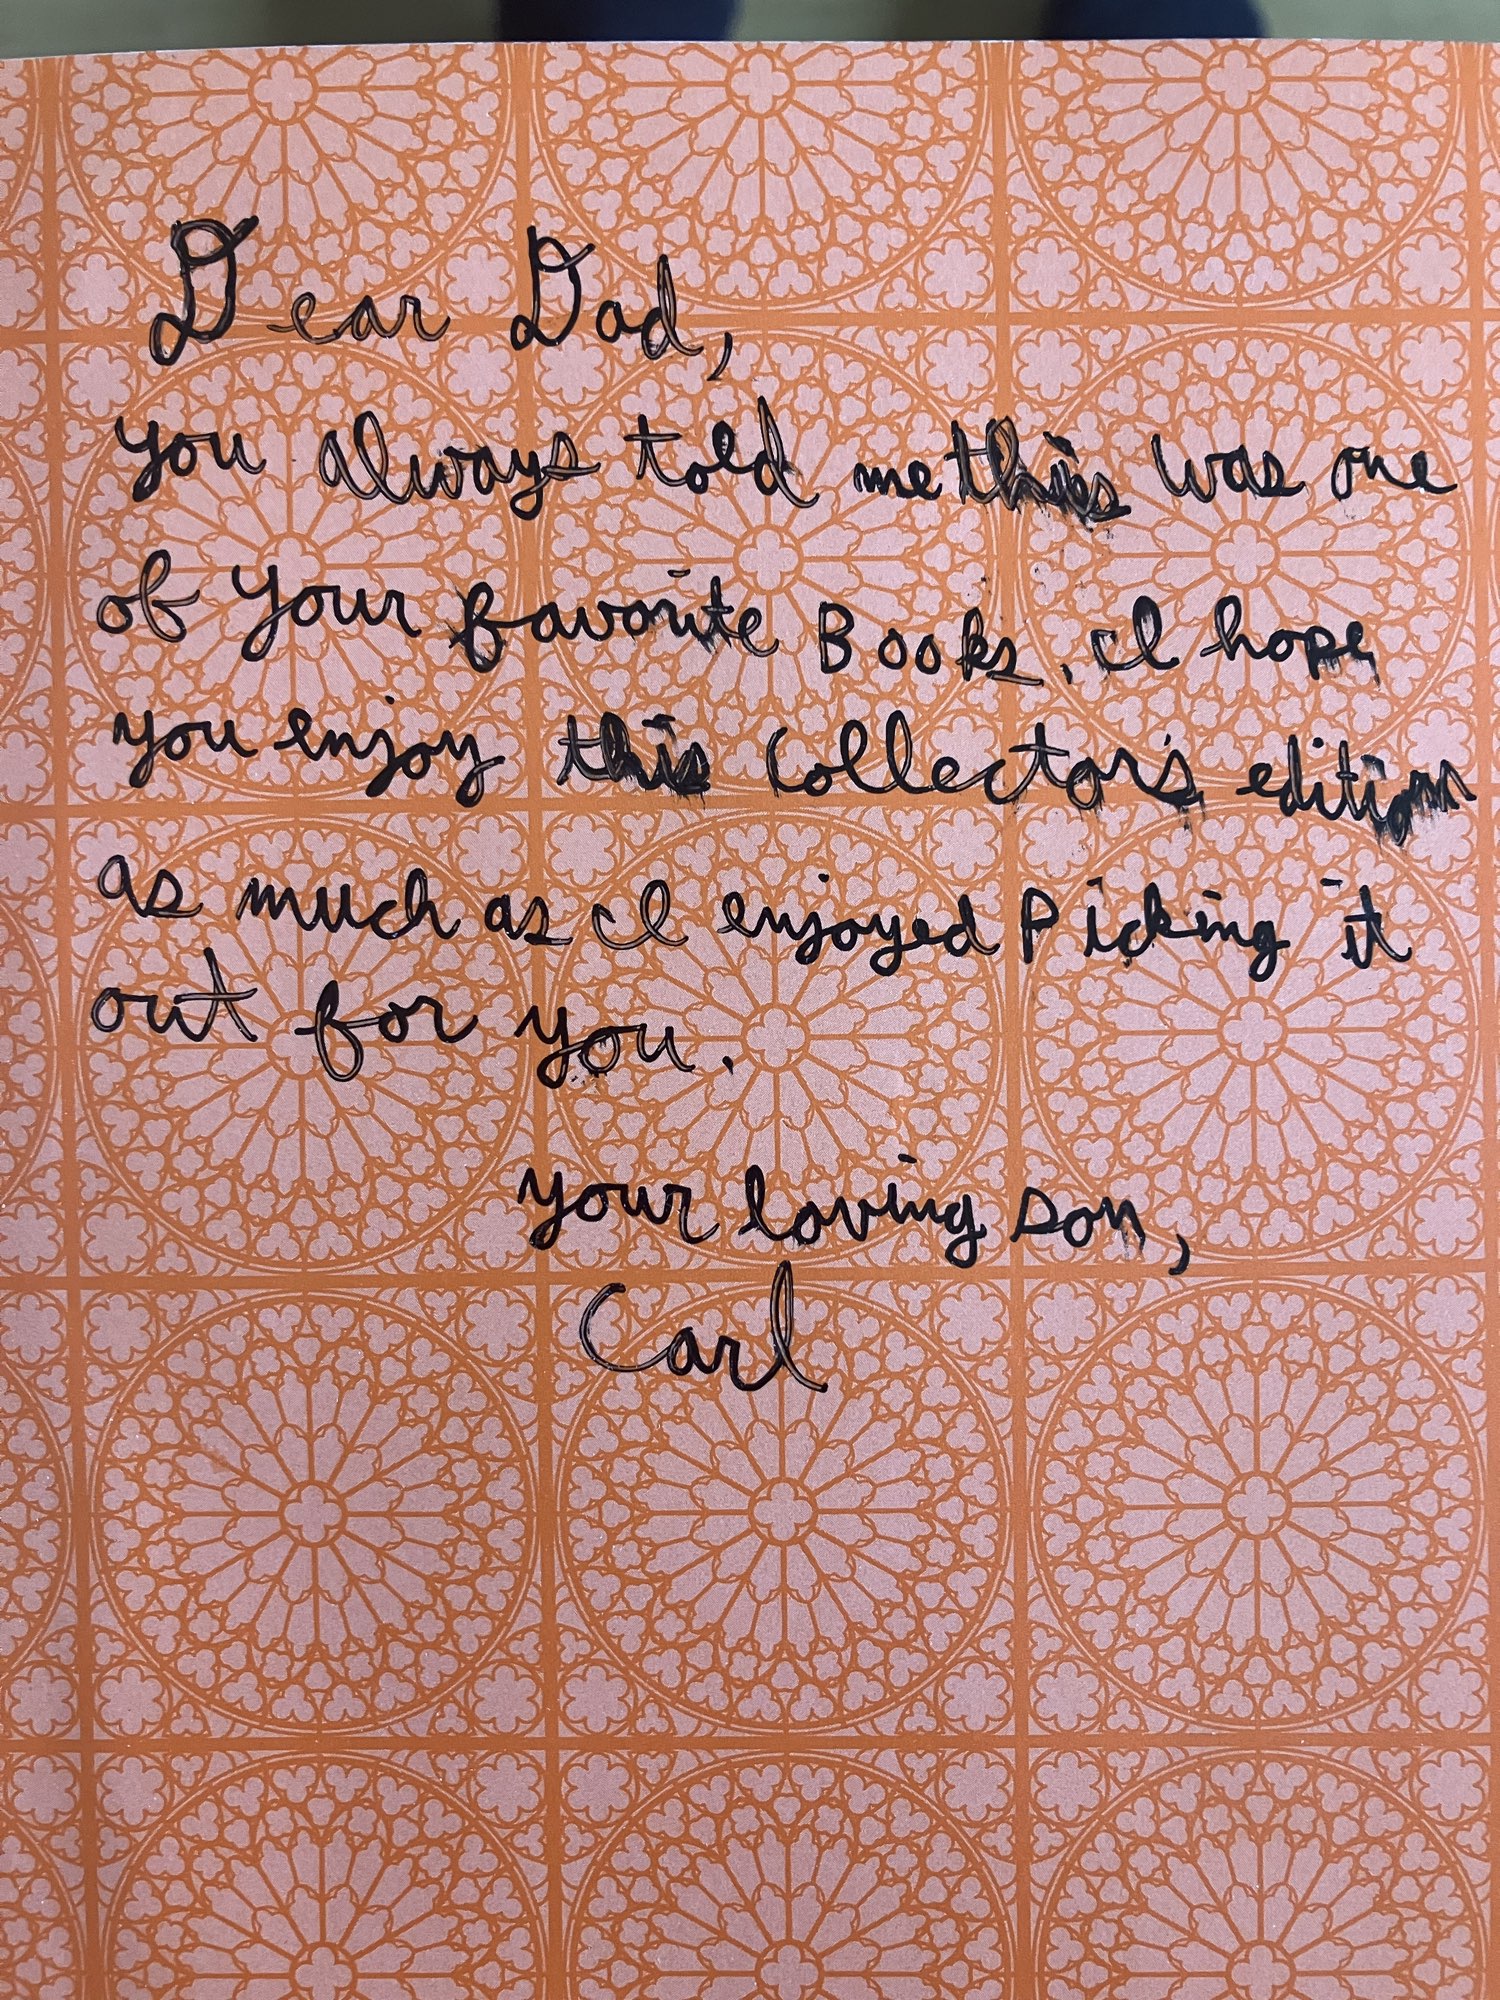 Dear Dad,
you always told me this was one
of your favorite Books. I hope
you enjoy this Collector's edition
as much as I enjoyed Picking it
out for you.
your loving son,
Carl